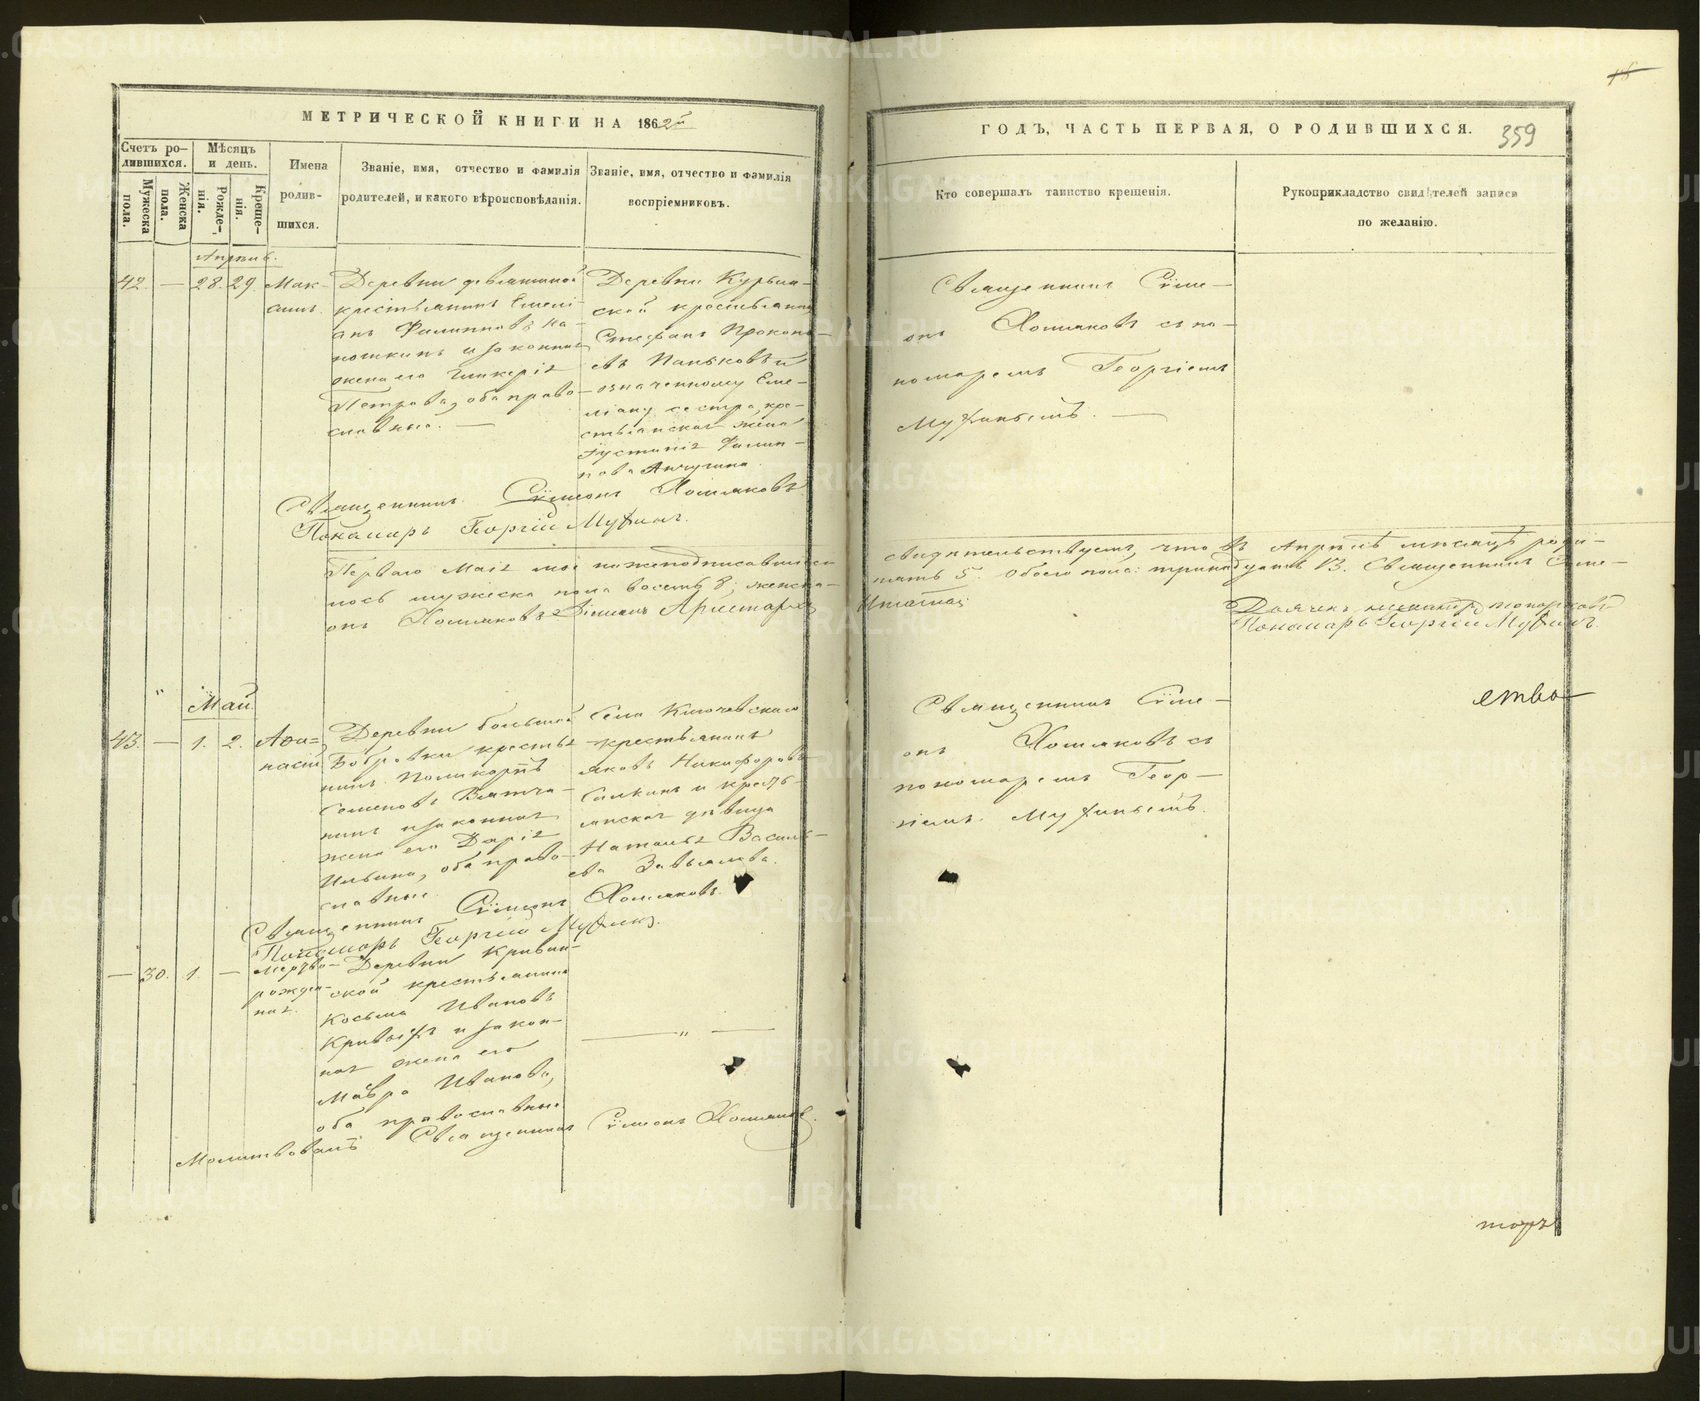 МЕТРИЧЕСКОЙ КНИГИ НА 1862й
ГОДЪ, ЧАСТЬ ПЕРВАЯ, О РОДИВШИХСЯ.
359
Счетъ ро-
дившихся.
Мужеска
пола.
Женска
пола.
Мѣсяцъ
и день.
Рожде-
нія.
Креще-
нія.
Имена
родив-
шихся.
Званіе, имя, отчество и фамилія
родителей, и какого вѣроисповѣданія.
Званіе, имя, отчество и фамилія
воспріемниковъ.
Кто совершалъ таинство крещенія.
Рукоприкладство свидѣтелей записи
по желанію.
Апрѣль.
42. — 28. 29.
Мак-
симъ.
Деревни
крестьянинъ Емелі-
анъ Филипповъ
и законная
жена его Гликерія
Петрова, оба право-
славные. —
Деревни Курьин-
ской крестьянинъ
Стефанъ Прокопь-
евъ Паньковъ и
означенному Еме-
ліану сестра, кре-
стьянская жена
Іустинія Филип-
пова Анчугина.
Священникъ Сѵме-
онъ Хомяковъ съ по-
номаремъ Георгіемъ
Мухинымъ. —
Священникъ Сѵмеонъ Хомяковъ
Пономарь Георгій Мухинъ.
Перваго Маія мы нижеподписавшіеся
свидѣтельствуемъ, что въ Апрѣлѣ мѣсяцѣ роди-
лось мужеска пола восемь 8, женска —
пять 5. Обоего пола: тринадцать 13. Священникъ Сѵме-
онъ Хомяковъ
Пономарь Георгій Мухинъ.
Май
43. — 1. 2.
Аѳа-
насій
Деревни большой
Бобровки крестья-
нинъ Поликарпъ
Семеновъ Вятча-
нинъ и законная
жена его Дарія
Ильина, оба право-
славные.
Села Ключевскаго
крестьянинъ
Яковъ Никифоровъ
и кресть-
янская дѣвица
Наталья Василь-
ева Завьялова.
Священникъ Сѵме-
онъ Хомяковъ съ
пономаремъ Геор-
гіемъ Мухинымъ.
ство
Священникъ Сѵмеонъ Хомяковъ.
Пономарь Георгій Мухинъ.
— 30. 1. —
Мертво-
рожден-
ная.
Деревни Кривин-
ской крестьянинъ
Косьма Ивановъ
Кривыхъ и закон-
ная жена его
Мавра Иванова,
оба православные
— " —
Молитвовалъ Священникъ Сѵмеонъ Хомяковъ.
METRIKI.GASO-URAL.RU